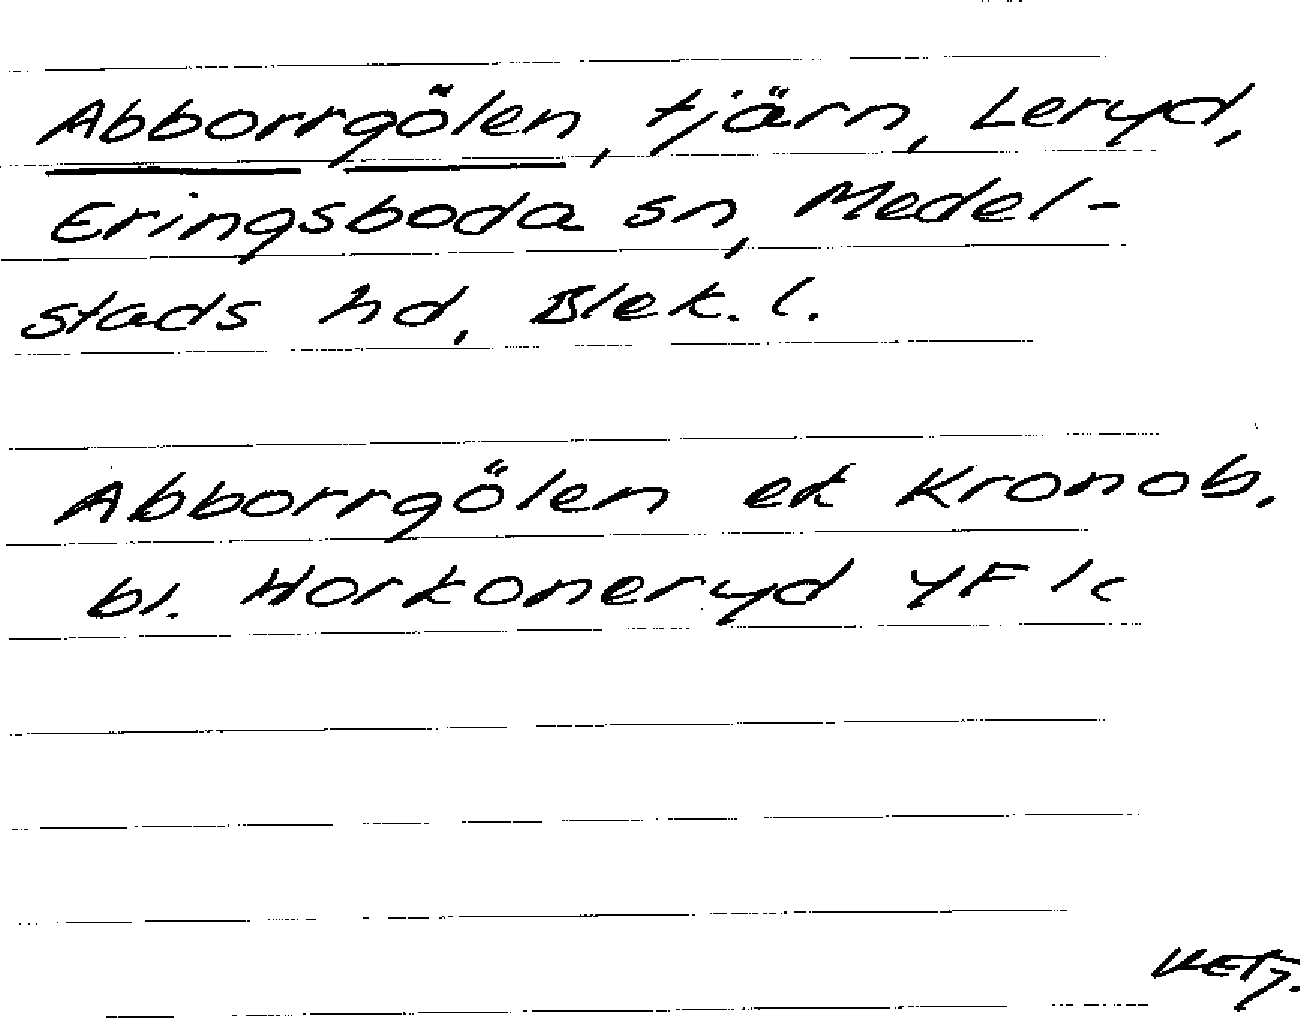 Abborrgölen, tjärn, Leryd,
Eringsboda sn, Medel-
stads hd, Blek. l.
Abborrgölen ek Kronob.
bl. Horkoneryd 4F 1c